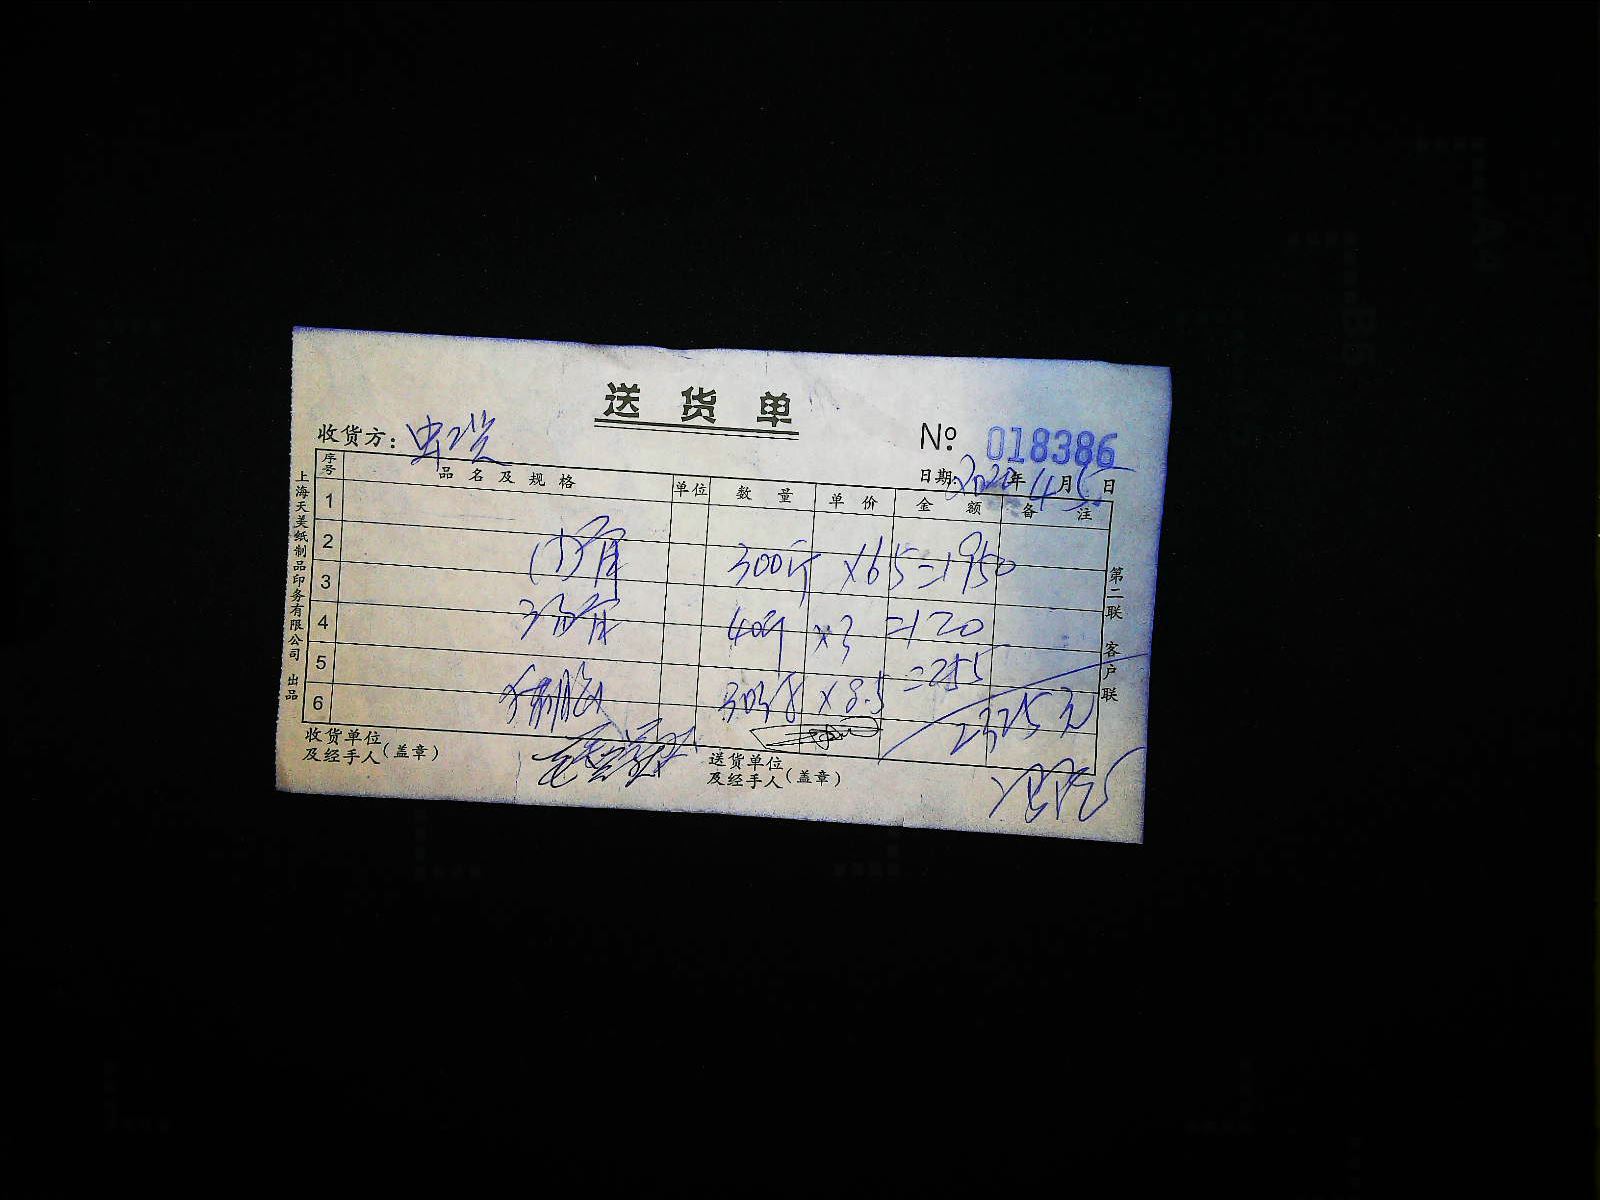 送货单
收货方：
№ 018386
日期：2020年4月5日
序号 品名及规格 单位 数量 单价 金额 备注
1
2 300斤 ×65=1950
3
4 40斤 ×3 =120
5 =255
6 30 ×8.5 2325元
收货单位及经手人（盖章）
送货单位及经手人（盖章）
上海天美纸制品印务有限公司 出品
第二联 客户联